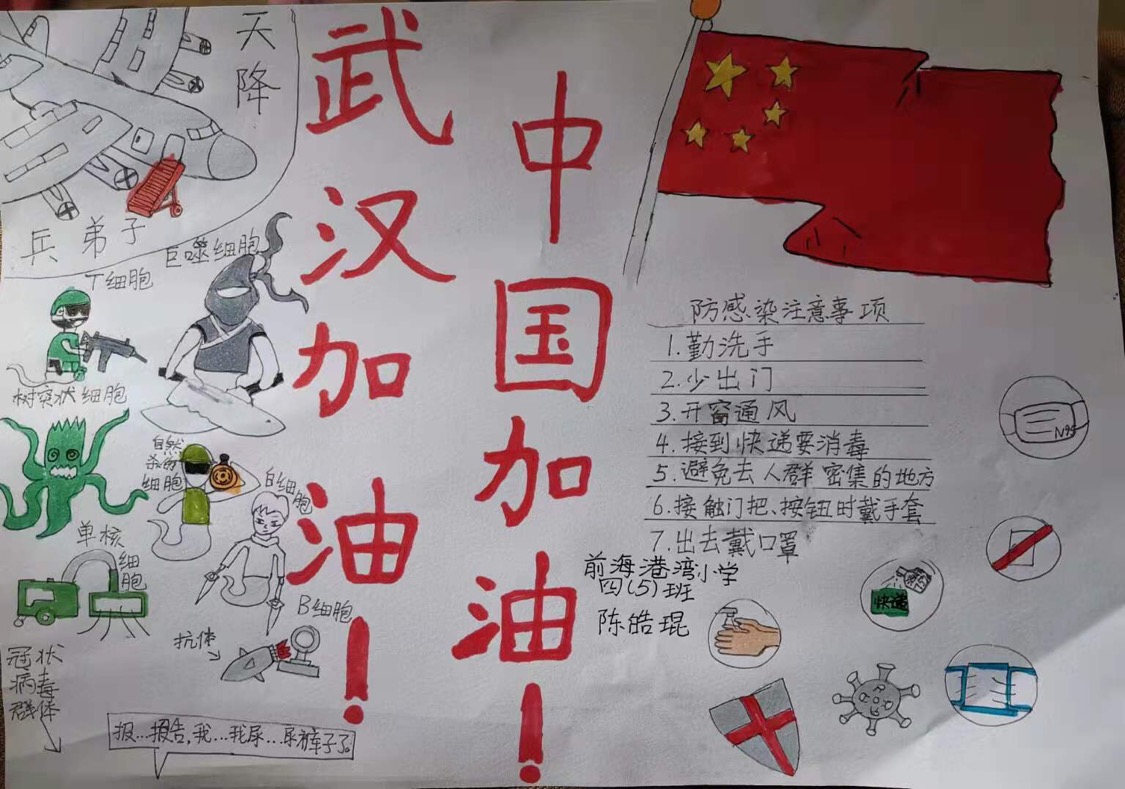 天降
兵弟子
武汉加油！
中国加油！
巨噬细胞
T细胞
树突状细胞
自然
杀伤
细胞
白细胞
单核
细胞
B细胞
抗体
冠状
病毒
群体
报...报告,我...我尿...尿裤子了。
防感染注意事项
1.勤洗手
2.少出门
3.开窗通风
4.接到快递要消毒
5.避免去人群密集的地方
6.接触门把、按钮时戴手套
7.出去戴口罩
前海港湾小学
四(5)班
陈皓琨
N95
快递